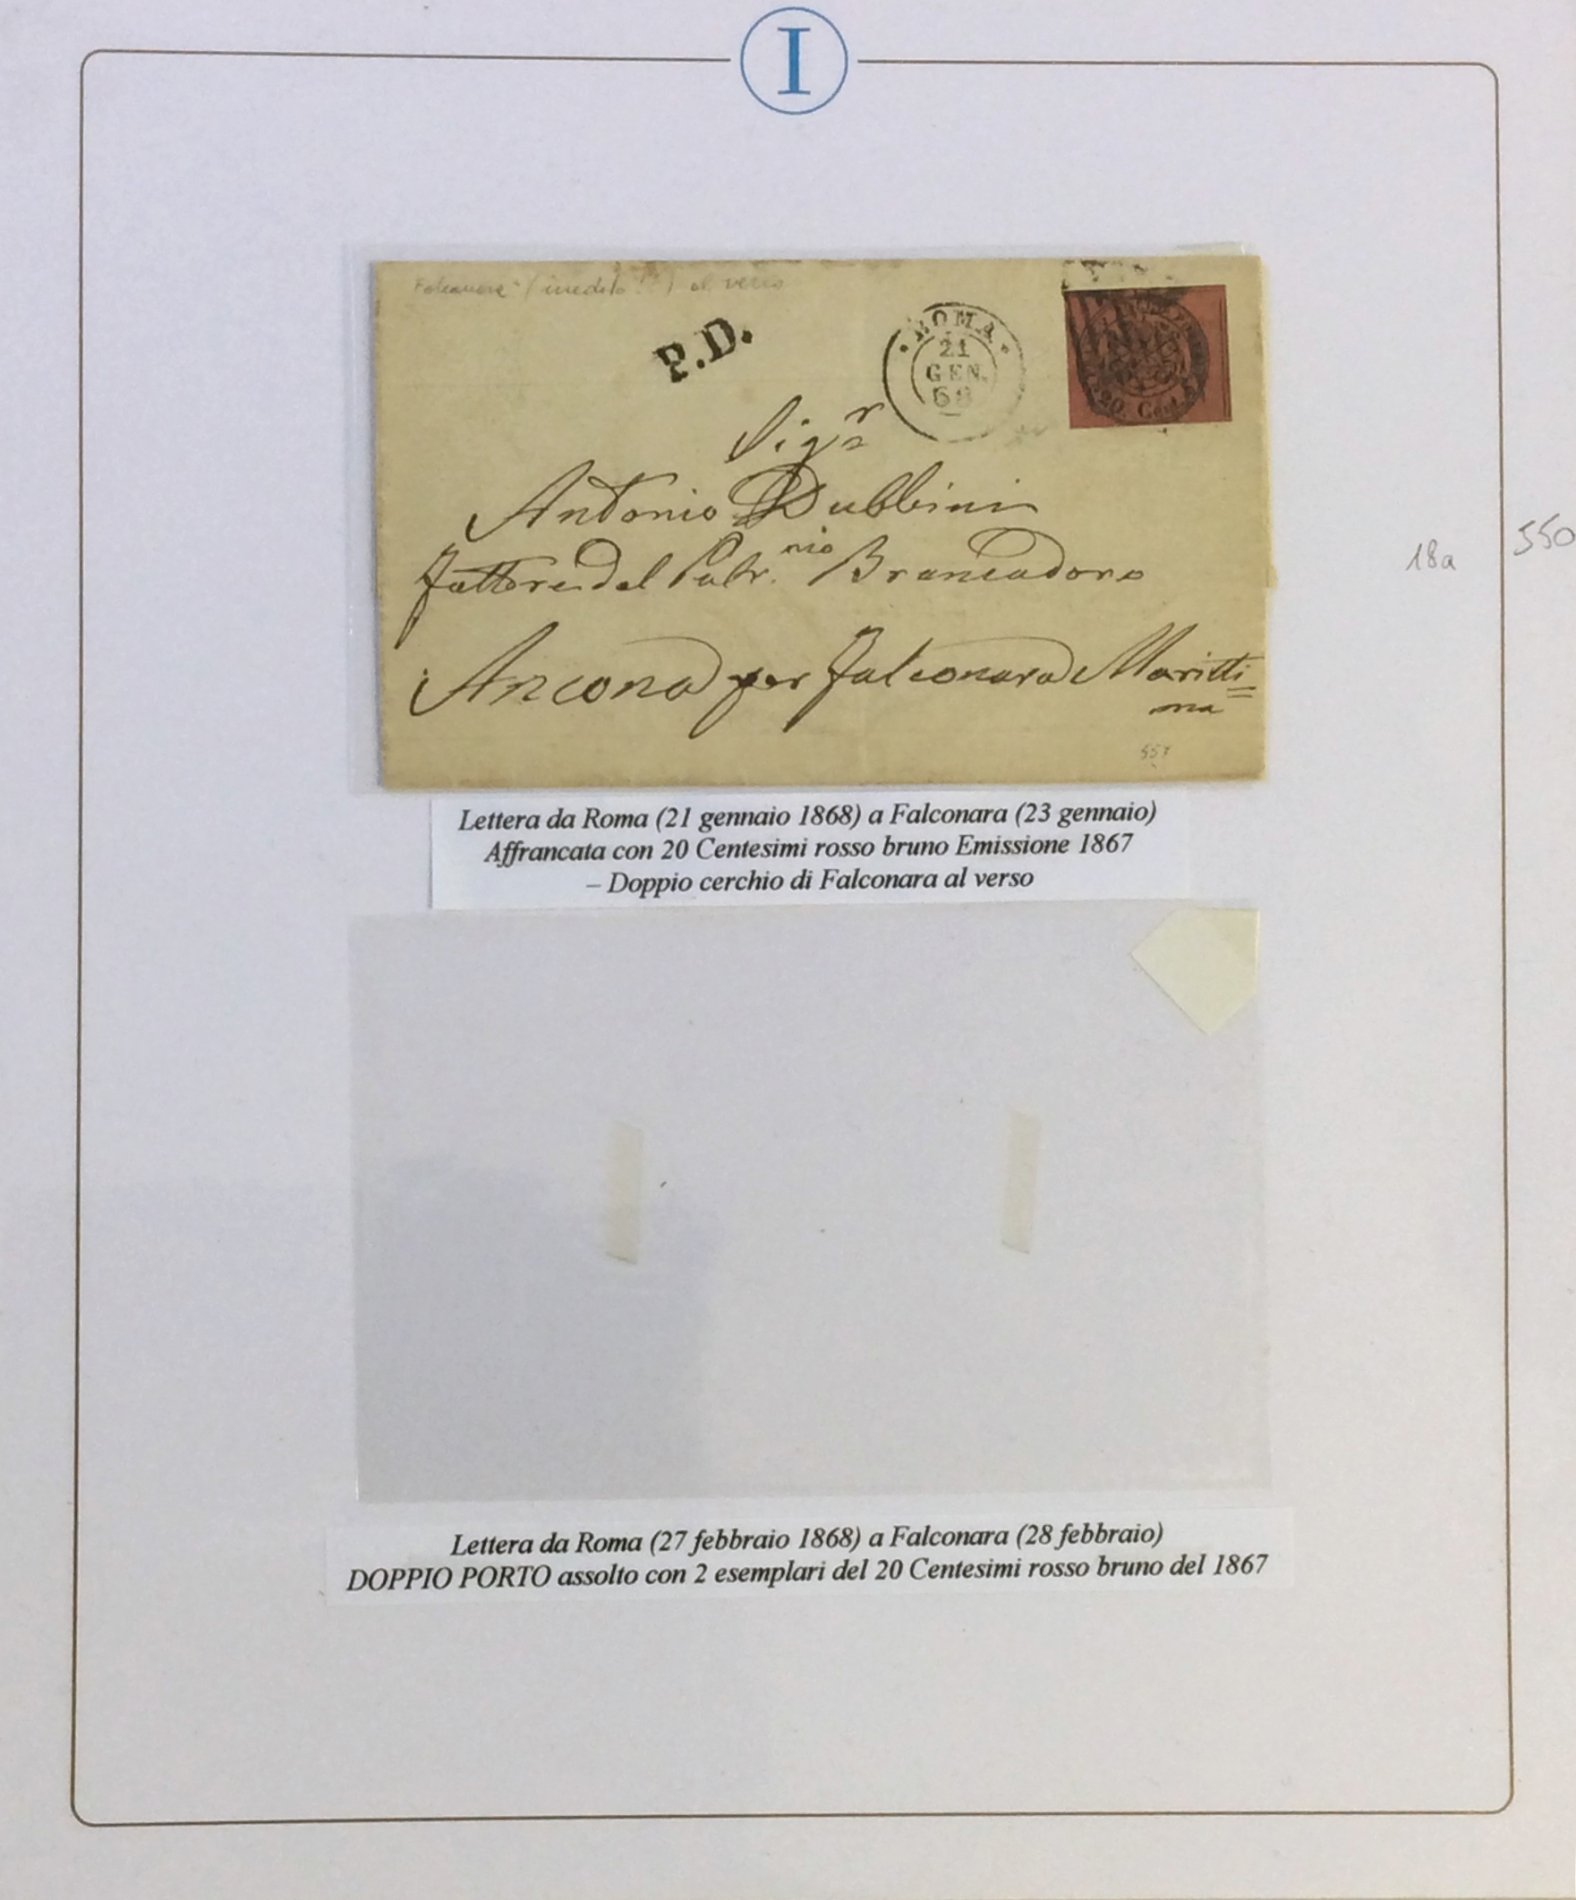 I
Falconara (inedito !!) al verso
P.D.
ROMA
21
GEN.
68
20 Cent.
Sigr
Antonio Dubbini
Fattore del Patr.nio Brancadoro
Ancona per Falconara Maritti=
ma
557
18a
550
Lettera da Roma (21 gennaio 1868) a Falconara (23 gennaio)
Affrancata con 20 Centesimi rosso bruno Emissione 1867
– Doppio cerchio di Falconara al verso
Lettera da Roma (27 febbraio 1868) a Falconara (28 febbraio)
DOPPIO PORTO assolto con 2 esemplari del 20 Centesimi rosso bruno del 1867